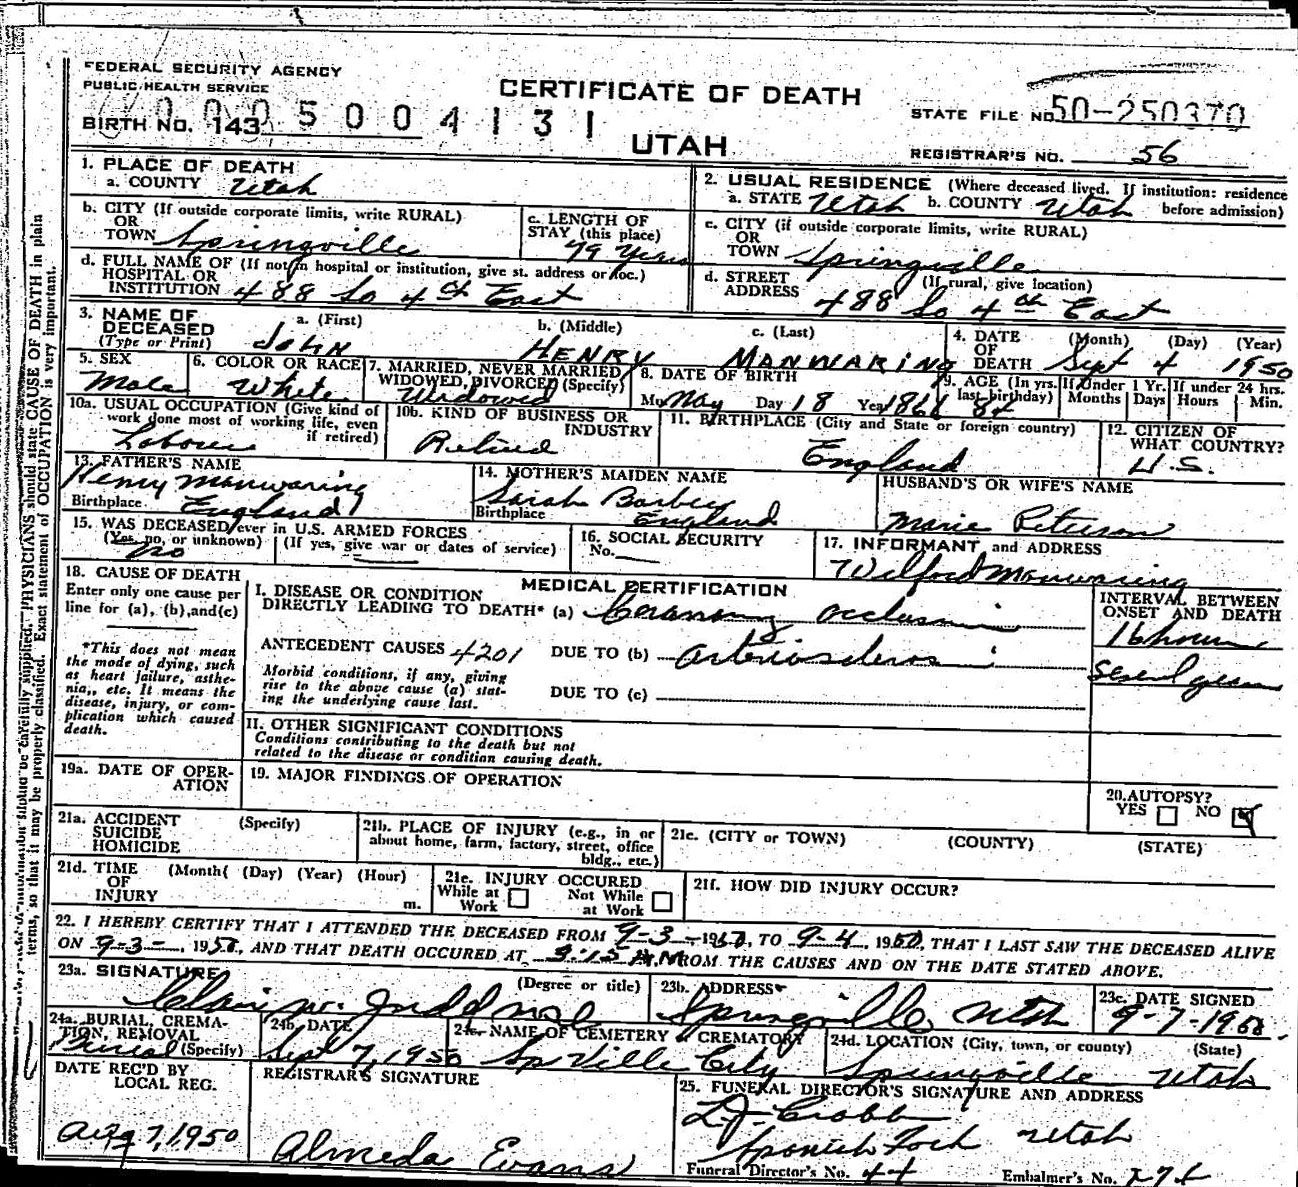 FEDERAL SECURITY AGENCY
PUBLIC HEALTH SERVICE
CERTIFICATE OF DEATH
STATE FILE NO. 50-250370
BIRTH NO. 143
0005004131
UTAH
REGISTRAR'S NO. 56
1. PLACE OF DEATH
a. COUNTY Utah
2. USUAL RESIDENCE (Where deceased lived. If institution: residence before admission)
a. STATE Utah b. COUNTY Utah
b. CITY (If outside corporate limits, write RURAL)
OR
TOWN Springville
c. LENGTH OF
STAY (this place)
79 Years
c. CITY (if outside corporate limits, write RURAL)
OR
TOWN Springville
d. FULL NAME OF (If not in hospital or institution, give st. address or loc.)
HOSPITAL OR
INSTITUTION 488 So 4th East
d. STREET (If rural, give location)
ADDRESS 488 So 4th East
3. NAME OF
DECEASED
(Type or Print)
a. (First) b. (Middle) c. (Last)
JOHN HENRY MANWARING
4. DATE
OF
DEATH
(Month) (Day) (Year)
Sept 4 1950
5. SEX
Male
6. COLOR OR RACE
White
7. MARRIED, NEVER MARRIED,
WIDOWED, DIVORCED (Specify)
Widowed
8. DATE OF BIRTH
Mo May Day 18 Year 1866
9. AGE (In yrs.
last birthday) 84
If Under 1 Yr.
Months Days
If under 24 hrs.
Hours Min.
10a. USUAL OCCUPATION (Give kind of
work done most of working life, even
if retired)
Laborer
10b. KIND OF BUSINESS OR
INDUSTRY
Retired
11. BIRTHPLACE (City and State or foreign country)
England
12. CITIZEN OF
WHAT COUNTRY?
U.S.
13. FATHER'S NAME
Henry Manwaring
Birthplace England
14. MOTHER'S MAIDEN NAME
Sarah
Birthplace England
HUSBAND'S OR WIFE'S NAME
Marie Peterson
15. WAS DECEASED ever in U.S. ARMED FORCES
(Yes, no, or unknown) (If yes, give war or dates of service)
No
16. SOCIAL SECURITY
No.
17. INFORMANT and ADDRESS
Wilford Manwaring
18. CAUSE OF DEATH
Enter only one cause per
line for (a), (b), and (c)
*This does not mean
the mode of dying, such
as heart failure, asthe-
nia,, etc. It means the
disease, injury, or com-
plication which caused
death.
MEDICAL CERTIFICATION
I. DISEASE OR CONDITION
DIRECTLY LEADING TO DEATH* (a) Coronary occlusion
INTERVAL BETWEEN
ONSET AND DEATH
16 hours
ANTECEDENT CAUSES 4201 DUE TO (b) arteriosclerosis
several years
Morbid conditions, if any, giving
rise to the above cause (a) stat-
ing the underlying cause last.
DUE TO (c)
II. OTHER SIGNIFICANT CONDITIONS
Conditions contributing to the death but not
related to the disease or condition causing death.
19a. DATE OF OPER-
ATION
19. MAJOR FINDINGS OF OPERATION
20. AUTOPSY?
YES NO
21a. ACCIDENT (Specify)
SUICIDE
HOMICIDE
21b. PLACE OF INJURY (e.g., in or
about home, farm, factory, street, office
bldg., etc.)
21c. (CITY or TOWN) (COUNTY) (STATE)
21d. TIME (Month( (Day) (Year) (Hour)
OF
INJURY m.
21e. INJURY OCCURED
While at Work Not While at Work
21f. HOW DID INJURY OCCUR?
22. I HEREBY CERTIFY THAT I ATTENDED THE DECEASED FROM 9-3-1950, TO 9-4, 1950, THAT I LAST SAW THE DECEASED ALIVE
ON 9-3-, 1950, AND THAT DEATH OCCURED AT 3:15 A.M FROM THE CAUSES AND ON THE DATE STATED ABOVE.
23a. SIGNATURE (Degree or title)
Clair W. Judd
23b. ADDRESS
Springville Utah
23c. DATE SIGNED
9-7-1950
24a. BURIAL, CREMA-
TION, REMOVAL
Burial (Specify)
24b. DATE
Sept 7, 1950
24c. NAME OF CEMETERY CREMATORY
Sp Ville City
24d. LOCATION (City, town, or county) (State)
Springville Utah
DATE REC'D BY
LOCAL REG.
Aug 7, 1950
REGISTRAR'S SIGNATURE
Almeda Evans
25. FUNERAL DIRECTOR'S SIGNATURE AND ADDRESS
Spanish Fork Utah
Funeral Director's No. 44 Embalmer's No.
PHYSICIANS should state CAUSE OF DEATH in plain
terms, so that it may be properly classified. Exact statement of OCCUPATION is very important.